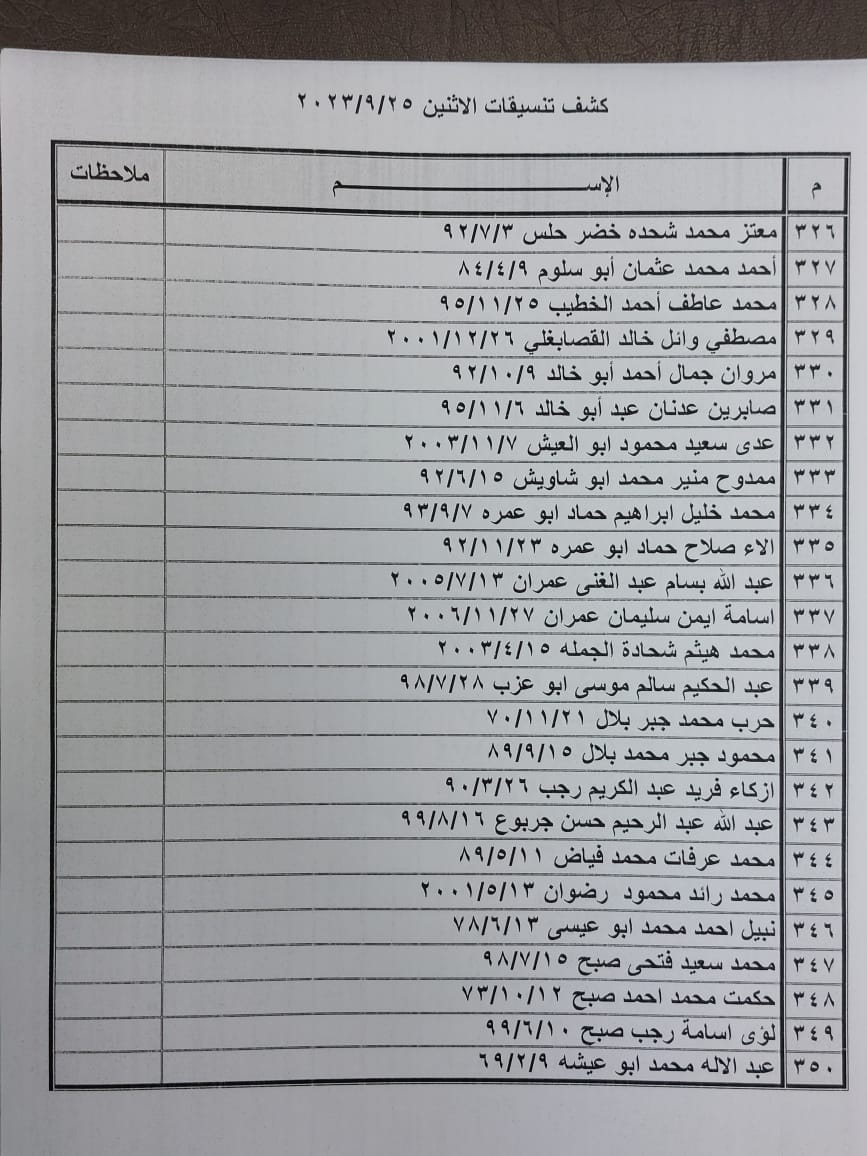 كشف تنسيقات الاثنين ٢٠٢٣/٩/٢٥
م الإســـــــــــــــــم ملاحظات
٣٢٦ معتز محمد شحده خضر حلس ٩٢/٧/٣
٣٢٧ أحمد محمد عثمان أبو سلوم ٨٤/٤/٩
٣٢٨ محمد عاطف أحمد الخطيب ٩٥/١١/٢٥
٣٢٩ مصطفي وائل خالد القصابغلي ٢٠٠١/١٢/٢٦
٣٣٠ مروان جمال أحمد أبو خالد ٩٢/١٠/٩
٣٣١ صابرين عدنان عبد أبو خالد ٩٥/١١/٦
٣٣٢ عدى سعيد محمود ابو العيش ٢٠٠٣/١١/٧
٣٣٣ ممدوح منير محمد ابو شاويش ٩٢/٦/١٥
٣٣٤ محمد خليل ابراهيم حماد ابو عمره ٩٣/٩/٧
٣٣٥ الاء صلاح حماد ابو عمره ٩٢/١١/٢٣
٣٣٦ عبد الله بسام عبد الغنى عمران ٢٠٠٥/٧/١٣
٣٣٧ اسامة ايمن سليمان عمران ٢٠٠٦/١١/٢٧
٣٣٨ محمد هيثم شحادة الجمله ٢٠٠٣/٤/١٥
٣٣٩ عبد الحكيم سالم موسى ابو عزب ٩٨/٧/٢٨
٣٤٠ حرب محمد جبر بلال ٧٠/١١/٢١
٣٤١ محمود جبر محمد بلال ٨٩/٩/١٥
٣٤٢ ازكاء فريد عبد الكريم رجب ٩٠/٣/٢٦
٣٤٣ عبد الله عبد الرحيم حسن جربوع ٩٩/٨/١٦
٣٤٤ محمد عرفات محمد فياض ٨٩/٥/١١
٣٤٥ محمد رائد محمود رضوان ٢٠٠١/٥/١٣
٣٤٦ نبيل احمد محمد ابو عيسى ٧٨/٦/١٣
٣٤٧ محمد سعيد فتحى صبح ٩٨/٧/١٥
٣٤٨ حكمت محمد احمد صبح ٧٣/١٠/١٢
٣٤٩ لؤى اسامة رجب صبح ٩٩/٦/١٠
٣٥٠ عبد الاله محمد ابو عيشه ٦٩/٢/٩